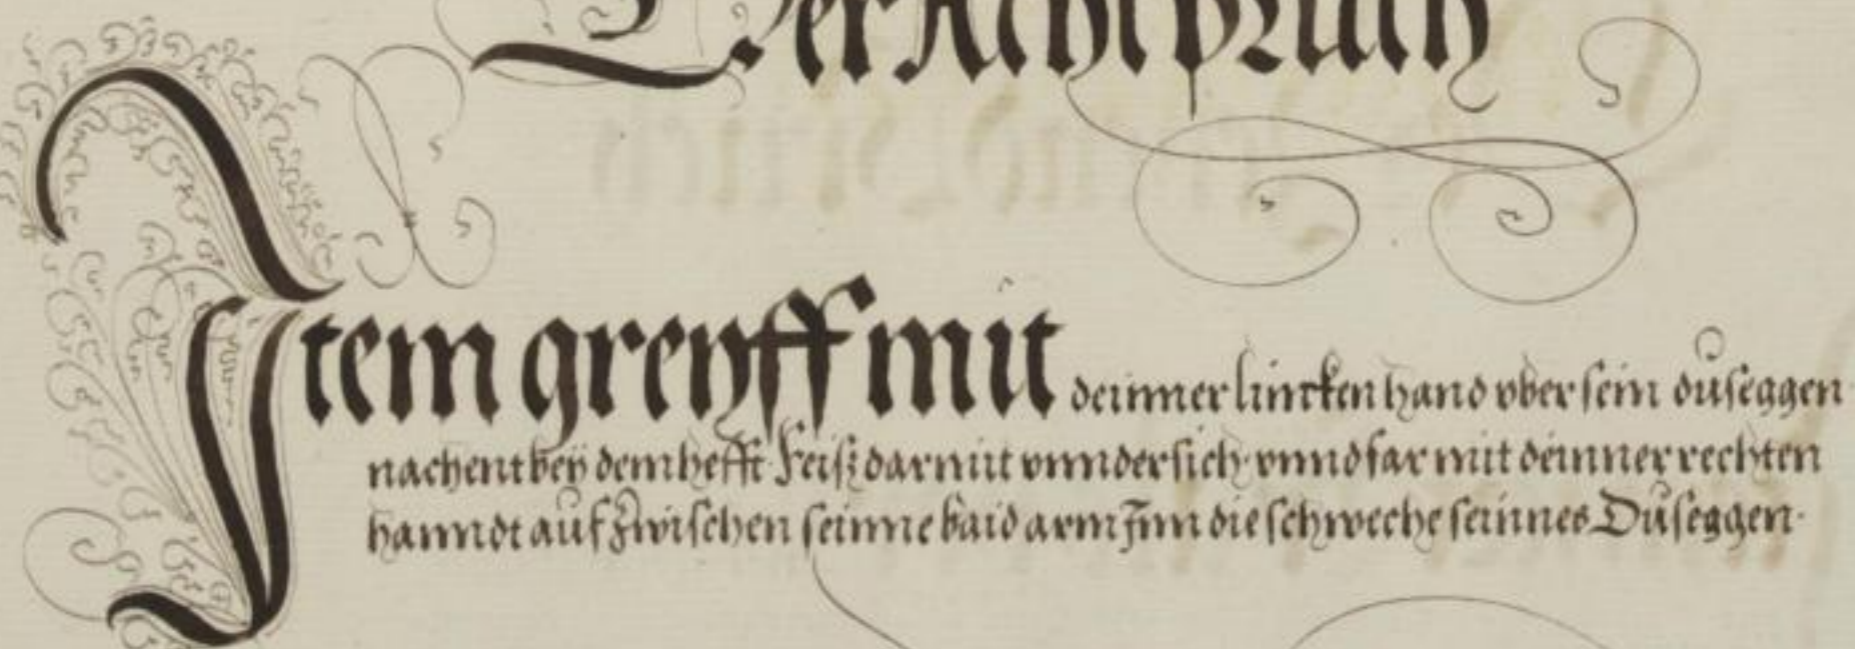 Der Acht pruch
Item greyff mit deinner lincken hand vber sein dusëggen
nachent beÿ dem hefft Reiß darmit vnnder sich vnnd far mit deinner rechten
hanndt auf zwischen seinne baid arm Inn die schweche seinnes Dusëggen